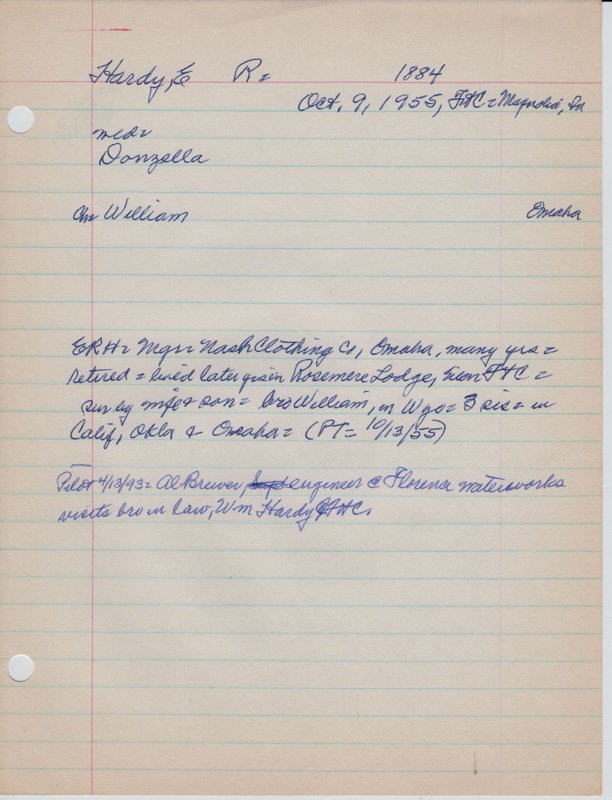 Hardy, E R = 1884
Oct, 9, 1955, FtC = Magnolia, Ia
med =
Donzella
ch = William Omaha
ERH = Mgr = Nash Clothing Co, Omaha, many yrs =
Retired = lived later yrs in Rosemere Lodge, FtC =
sur by wife & son = bro William, in Wyo = 3 sis = in
Calif, Okla & Omaha = (PT = 10/13/55)
Pilot 4/13/93 = Al Brewer, engineer @ Florence waterworks
visits bro in law, Wm Hardy @ FtC.